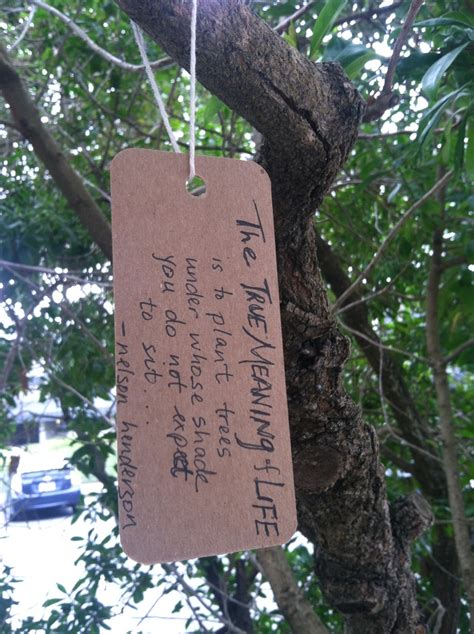 The TRUE MEANING of LIFE
is to plant trees
under whose shade
you do not expect
to sit...
-nelson henderson